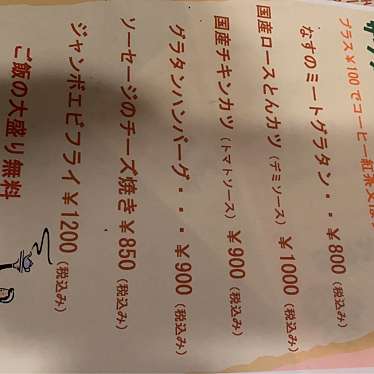 プラス¥100でコーヒー紅茶
なすのミートグラタン・・¥800(税込み)
国産ロースとんカツ(デミソース)¥1000(税込み)
国産チキンカツ(トマトソース)¥900(税込み)
グラタンハンバーグ・・・¥900(税込み)
ソーセージのチーズ焼き¥850(税込み)
ジャンボエビフライ¥1200(税込み)
ご飯の大盛り無料